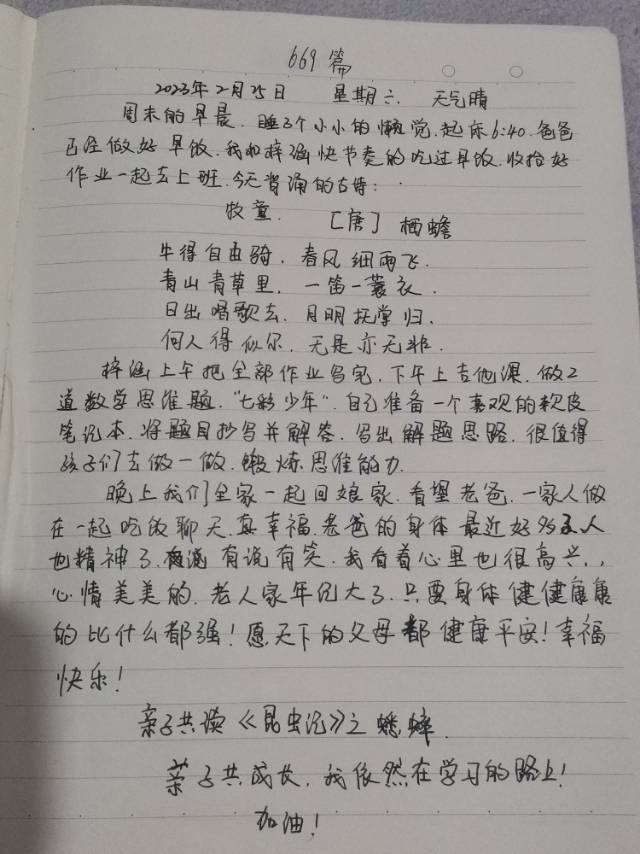 669篇
2023年2月25日 星期六 天气晴
周末的早晨,睡了个小小的懒觉,起床6:40.爸爸
已经做好早饭,我和梓涵快节奏的吃过早饭,收拾好
作业一起去上班,今天背诵的古诗:
牧童 [唐] 栖蟾
牛得自由骑,春风细雨飞.
青山青草里,一笛一蓑衣.
日出唱歌去,月明抚掌归.
何人得似尔,无是亦无非.
梓涵上午把全部作业写完,下午上吉他课,做2
道数学思维题,“七彩少年”,自己准备一个喜欢的软皮
笔记本,将题目抄写并解答,写出解题思路,很值得
孩子们去做一做,锻炼思维能力.
晚上我们全家一起回娘家,看望老爸,一家人做
在一起吃饭聊天,真幸福,老爸的身体最近好多了人
也精神了,有说有笑,我看着心里也很高兴,,
心情美美的,老人家年纪大了,只要身体健健康康
的比什么都强!愿天下的父母都健康平安!幸福
快乐!
亲子共读《昆虫记》之蟋蟀.
亲子共成长,我依然在学习的路上!
加油!